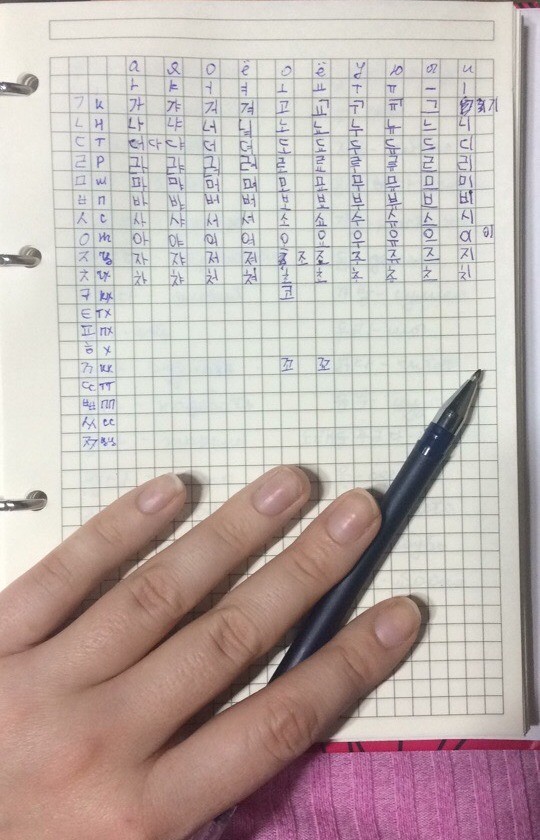 а я о ё о ё у ю ы и
ㅏ ㅑ ㅓ ㅕ ㅗ ㅛ ㅜ ㅠ ㅡ ㅣ
ㄱ к 가 갸 거 겨 고 교 구 규 그 기
ㄴ н 나 냐 너 녀 노 뇨 누 뉴 느 니
ㄷ т 다 댜 더 뎌 도 됴 두 듀 드 디
ㄹ р 라 랴 러 려 로 료 루 류 르 리
ㅁ м 마 먀 머 며 모 묘 무 뮤 므 미
ㅂ п 바 뱌 버 벼 보 뵤 부 뷰 브 비
ㅅ с 사 샤 서 셔 소 쇼 수 슈 스 시
ㅇ 아 야 어 여 오 요 우 유 으 이 이
ㅈ 자 쟈 저 져 조 죠 주 쥬 즈 지
ㅊ 차 챠 처 쳐 초 쵸 추 츄 츠 치
ㅋ кх 코
ㅌ тх
ㅍ пх
ㅎ х
ㄲ кк 꼬 꾜
ㄸ тт
ㅃ пп
ㅆ сс
ㅉ